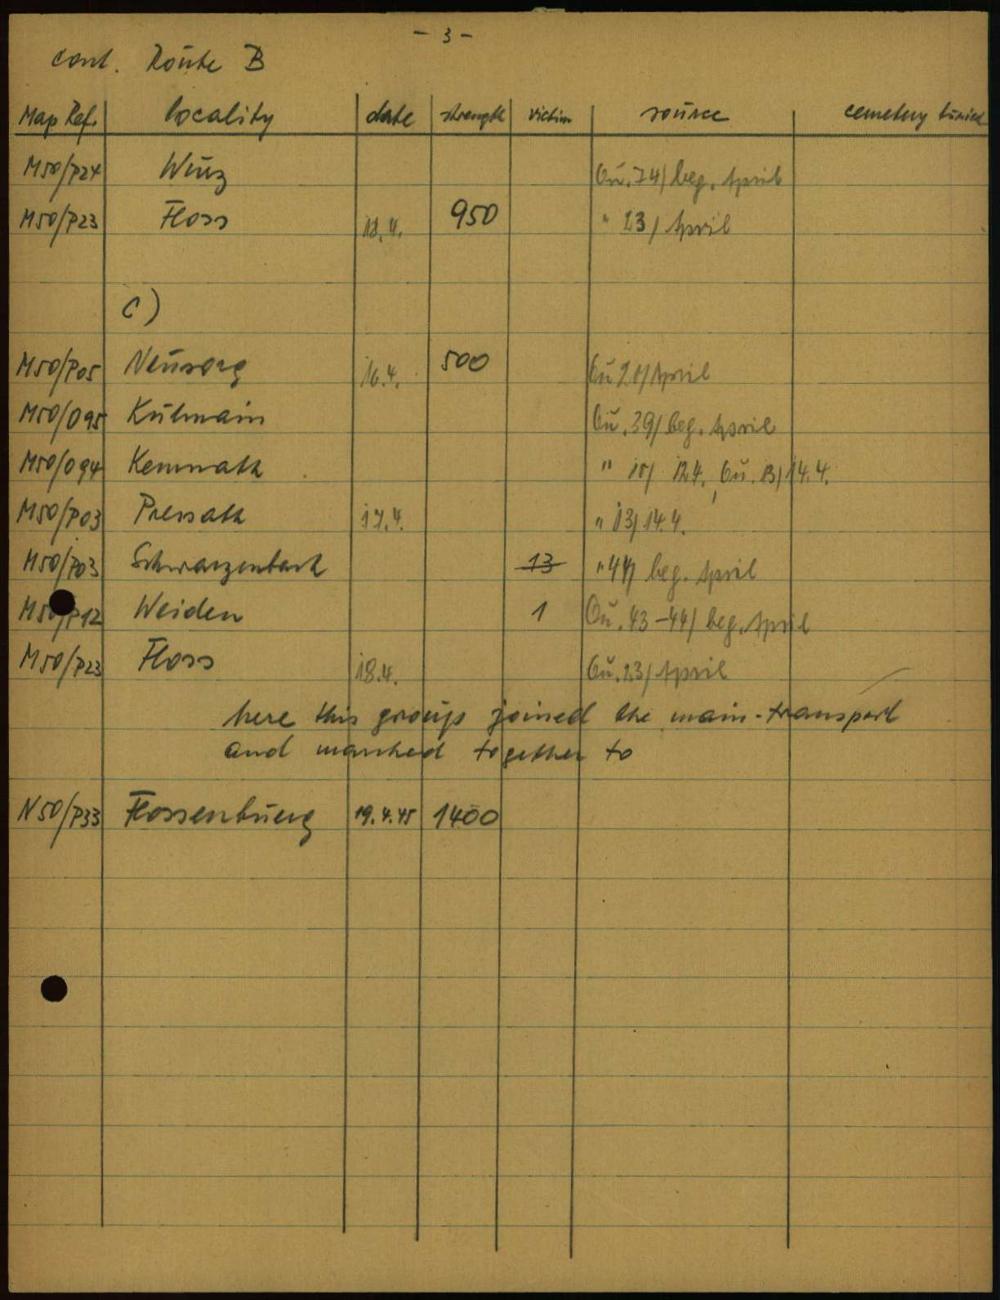 - 3 -
cont. Route B
Map Ref. locality date strength victim source cemetery buried
M50/P24 Wurz Qu. 74/ beg. April
M50/P23 Floss 18.4. 950 " 23/ April
c)
M50/P05 Neusorg 16.4. 500 Qu 21/April
M50/O95 Kulmain Qu. 39/ beg. April
M50/O94 Kemnath " 15/ 12.4., Qu. 13/14.4.
M50/P03 Pressath 17.4. " 13/ 14.4.
M50/P03 Schwarzenbach 13 " 44/ beg. April
M50/P12 Weiden 1 Qu. 43-44/ beg. April
M50/P23 Floss 18.4. Qu. 23/ April
here this group joined the main-transport
and marched together to
N50/P33 Flossenbuerg 19.4.45 1400